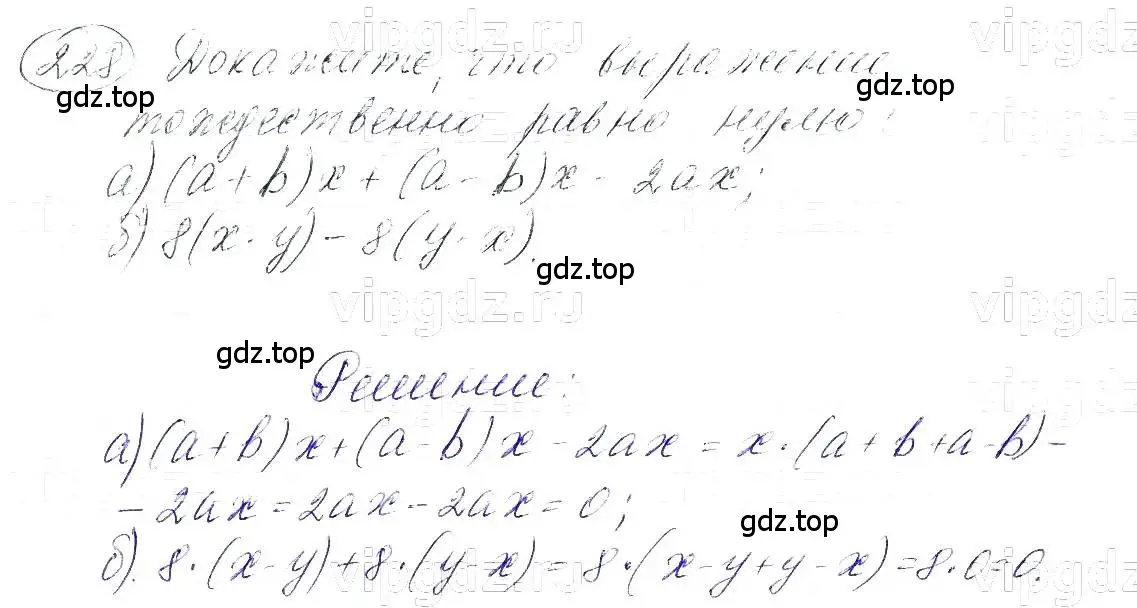 228 Докажите, что выражение
тождественно равно нулю:
а) (a + b)x + (a - b)x - 2ax;
б) 8(x - y) - 8(y - x).
Решение:
а) (a + b)x + (a - b)x - 2ax = x · (a + b + a - b) -
- 2ax = 2ax - 2ax = 0;
б). 8 · (x - y) + 8 · (y - x) = 8 · (x - y + y - x) = 8 · 0 = 0.
vipgdz.ru
vipgdz.ru
gdz.top
gdz.top
gdz.top
vipgdz.ru
vipgdz.ru
gdz.top
gdz.top